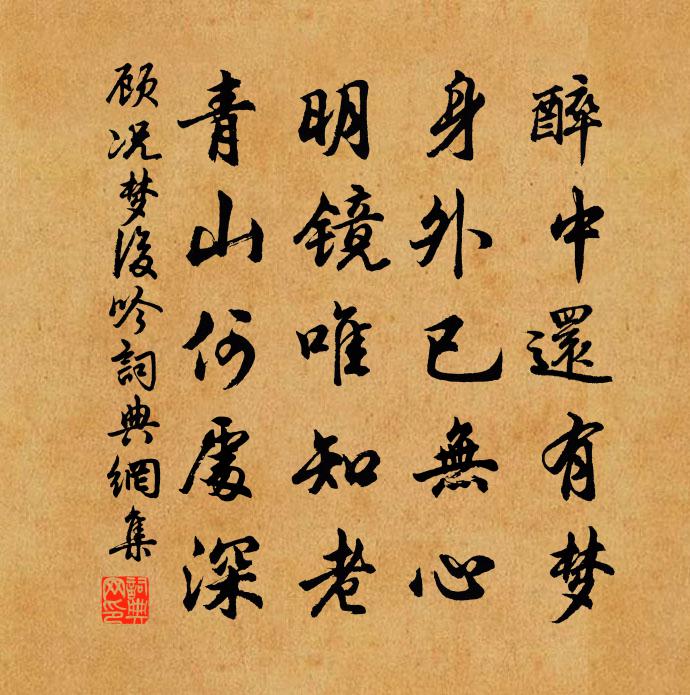 醉中還有梦
身外已無心
明镜唯知老
青山何處深
顾况梦後吟詞典網集
詞典网印